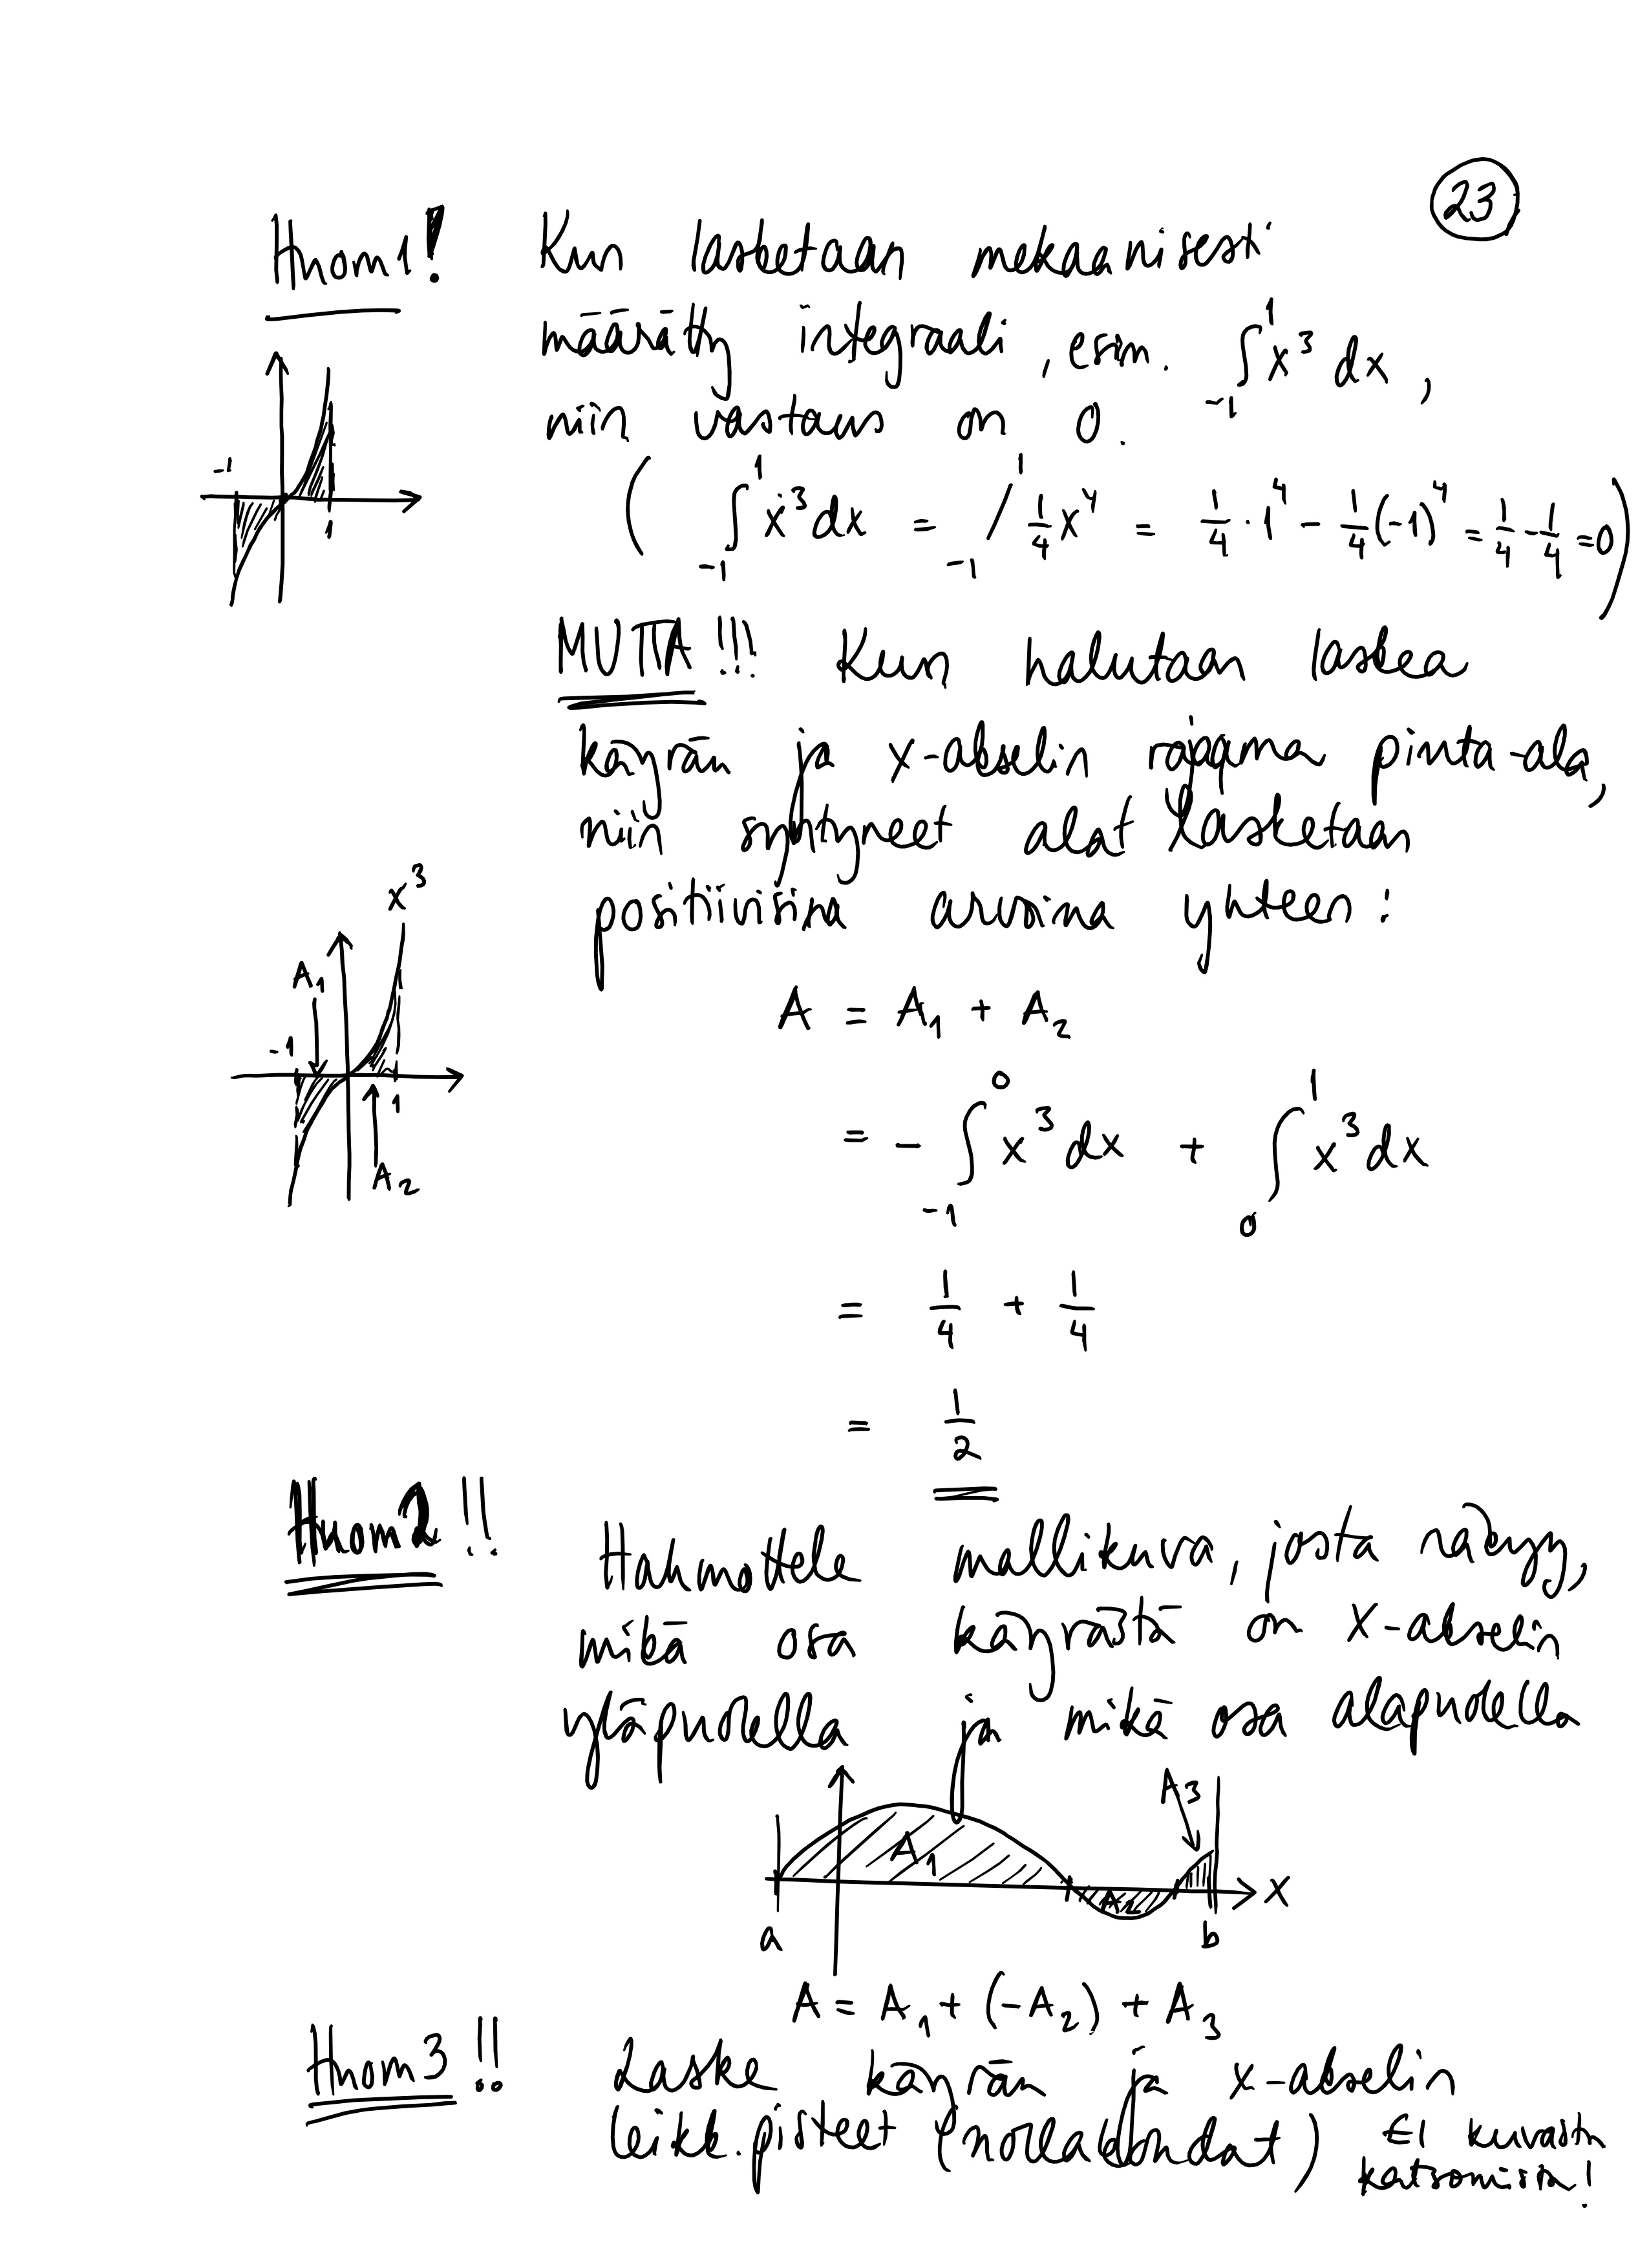 23
Huom1! Kun lasketaan mekaanisesti
määrätty integraali, esim. ∫₋₁¹ x³ dx,
niin vastaus on 0.
-1 1
( ∫₋₁¹ x³dx = ₋₁/¹ ¼x⁴ = ¼·1⁴ - ¼(-1)⁴ = ¼ - ¼ = 0 )
MUTTA!!! Kun halutaan laskea
käyrän ja x-akselin rajaama pinta-ala,
niin syntyneet alat lasketaan
positiivisina arvoina yhteen:
x³
A₁
-1 1
A₂
A = A₁ + A₂
= - ∫₋₁⁰ x³dx + ∫₀¹ x³dx
= ¼ + ¼
= ½
Huom2!! Hahmottele mallikuva, josta näkyy,
mikä osa käyrästä on x-akselin
yläpuolella ja mikä osa alapuolella
A₃
A₁
A₂ x
a b
A = A₁ + (-A₂) + A₃
Huom3!! Laske käyrän ja x-akselin
leikk.pisteet (nollakohdat) EI kuvasta
katsomista!